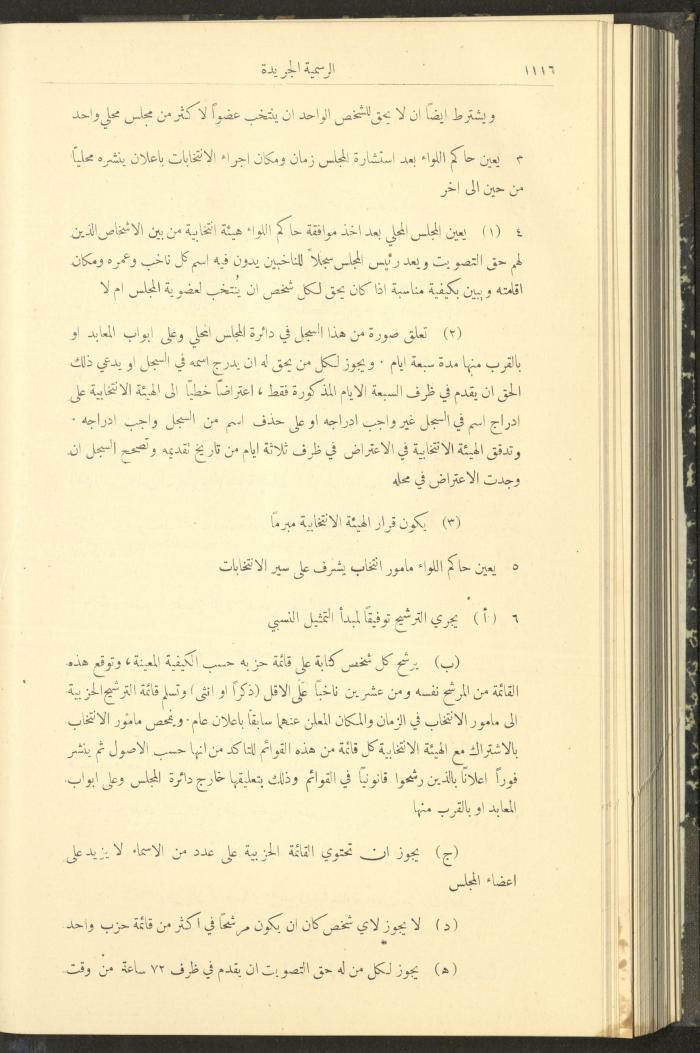 ١١١٦
الرسمية الجريدة
ويشترط ايضاً ان لا يحق للشخص الواحد ان ينتخب عضواً لاكثر من مجلس محلي واحد
٣ يعين حاكم اللواء بعد استشارة المجلس زمان ومكان اجراء الانتخابات باعلان ينشره محليّا
من حين الى اخر
٤ (١) يعين المجلس المحلي بعد اخذ موافقة حاكم اللواء هيئة انتخابية من بين الاشخاص الذين
لهم حق التصويت ويعد رئيس المجلس سجلاً للناخبين يدون فيه اسم كل ناخب وعمره ومكان
اقامته ويبين بكيفية مناسبة اذا كان يحق لكل شخص ان يُنتخب لعضوية المجلس ام لا
(٢) تعلق صورة من هذا السجل في دائرة المجلس المحلي وعلى ابواب المعابد او
بالقرب منها مدة سبعة ايام . ويجوز لكل من يحق له ان يدرج اسمه في السجل او يدعي ذلك
الحق ان يقدم في ظرف السبعة الايام المذكورة فقط ، اعتراضاً خطيّا الى الهيئة الانتخابية على
ادراج اسم في السجل غير واجب ادراجه او على حذف اسم من السجل واجب ادراجه .
وتدقق الهيئة الانتخابية في الاعتراض في ظرف ثلاثة ايام من تاريخ تقديمه وتصحح السجل ان
وجدت الاعتراض في محله
(٣) يكون قرار الهيئة الانتخابية مبرمّا
٥ يعين حاكم اللواء مامور انتخاب يشرف على سير الانتخابات
٦ (أ) يجري الترشيح توفيقاً لمبدأ التمثيل النسبي
(ب) يرشح كل شخص كتابة على قائمة حزبه حسب الكيفية المعينة ، وتوقع هذه
القائمة من المرشح نفسه ومن عشرين ناخباً على الاقل (ذكراً او انثى) وتسلم قائمة الترشيح الحزبية
الى مامور الانتخاب في الزمان والمكان المعلن عنهما سابقاً باعلان عام . ويمحص مامور الانتخاب
بالاشتراك مع الهيئة الانتخابية كل قائمة من هذه القوائم للتاكد من انها حسب الاصول ثم ينشر
فوراً اعلاناً بالذين رشحوا قانونيّا في القوائم وذلك بتعليقها خارج دائرة المجلس وعلى ابواب
المعابد او بالقرب منها
(ج) يجوز ان تحتوي القائمة الحزبية على عدد من الاسماء لا يزيد على
اعضاء المجلس
(د) لا يجوز لاي شخص كان ان يكون مرشحاً في اكثر من قائمة حزب واحد
(ه) يجوز لكل من له حق التصويت ان يقدم في ظرف ٧٢ ساعة من وقت